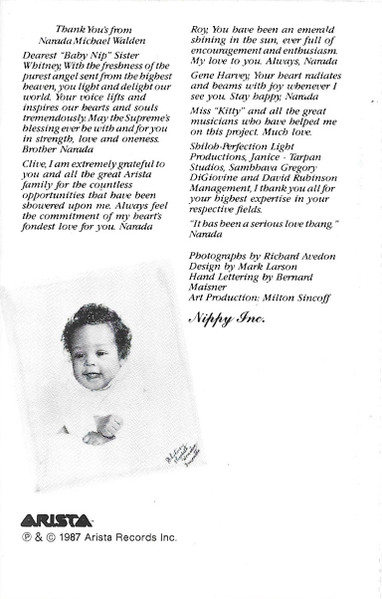 Thank You's from
Narada Michael Walden
Dearest "Baby Nip" Sister
Whitney, With the freshness of the
purest angel sent from the highest
heaven, you light and delight our
world. Your voice lifts and
inspires our hearts and souls
tremendously. May the Supreme's
blessing ever be with and for you
in strength, love and oneness.
Brother Narada
Clive, I am extremely grateful to
you and all the great Arista
family for the countless
opportunities that have been
showered upon me. Always feel
the commitment of my heart's
fondest love for you. Narada
Roy, You have been an emerald
shining in the sun, ever full of
encouragement and enthusiasm.
My love to you. Always, Narada
Gene Harvey, Your heart radiates
and beams with joy whenever I
see you. Stay happy, Narada
Miss "Kitty" and all the great
musicians who have helped me
on this project. Much love.
Shiloh-Perfection Light
Productions, Janice - Tarpan
Studios, Sambhava Gregory
DiGiovine and David Rubinson
Management, I thank you all for
your highest expertise in your
respective fields.
"It has been a serious love thang."
Narada
Photographs by Richard Avedon
Design by Mark Larson
Hand Lettering by Bernard
Maisner
Art Production: Milton Sincoff
Nippy Inc.
ARISTA
℗ & © 1987 Arista Records Inc.